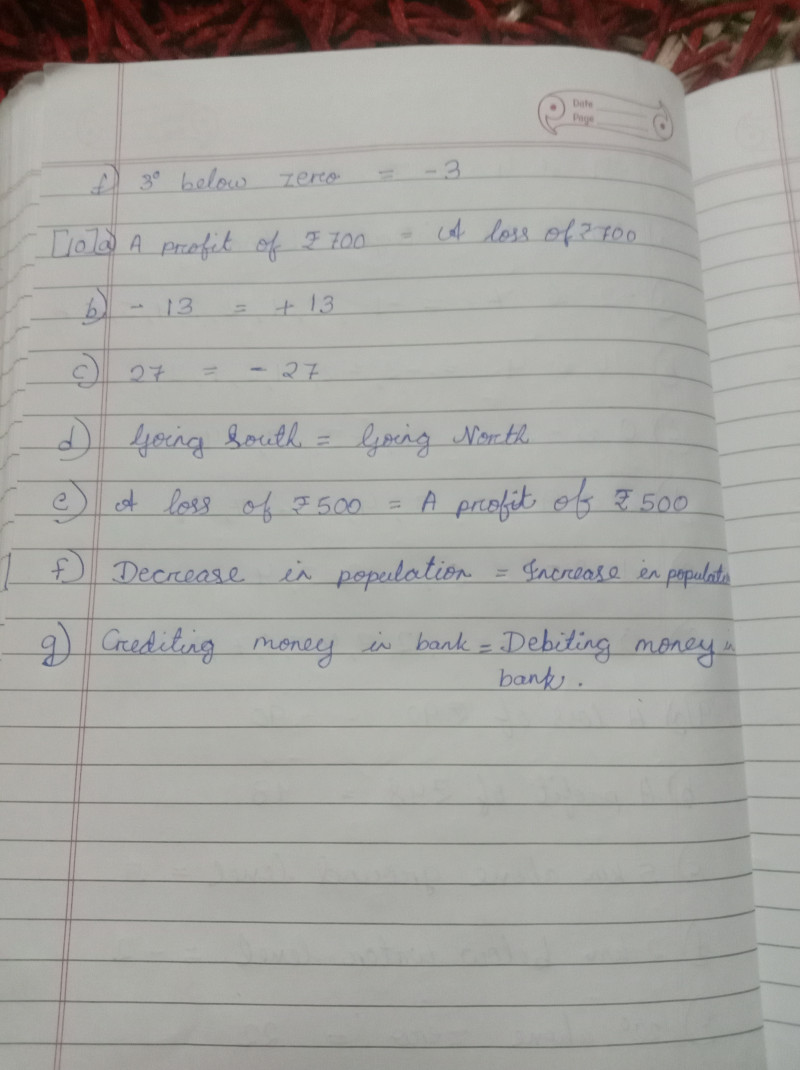 Date
Page
f) 3° below zero = -3
[10]a) A profit of ₹700 = A loss of ₹700
b) - 13 = + 13
c) 27 = - 27
d) Going South = Going North
e) A loss of ₹500 = A profit of ₹500
f) Decrease in population = Increase in populati
g) Crediting money in bank = Debiting money in
bank.